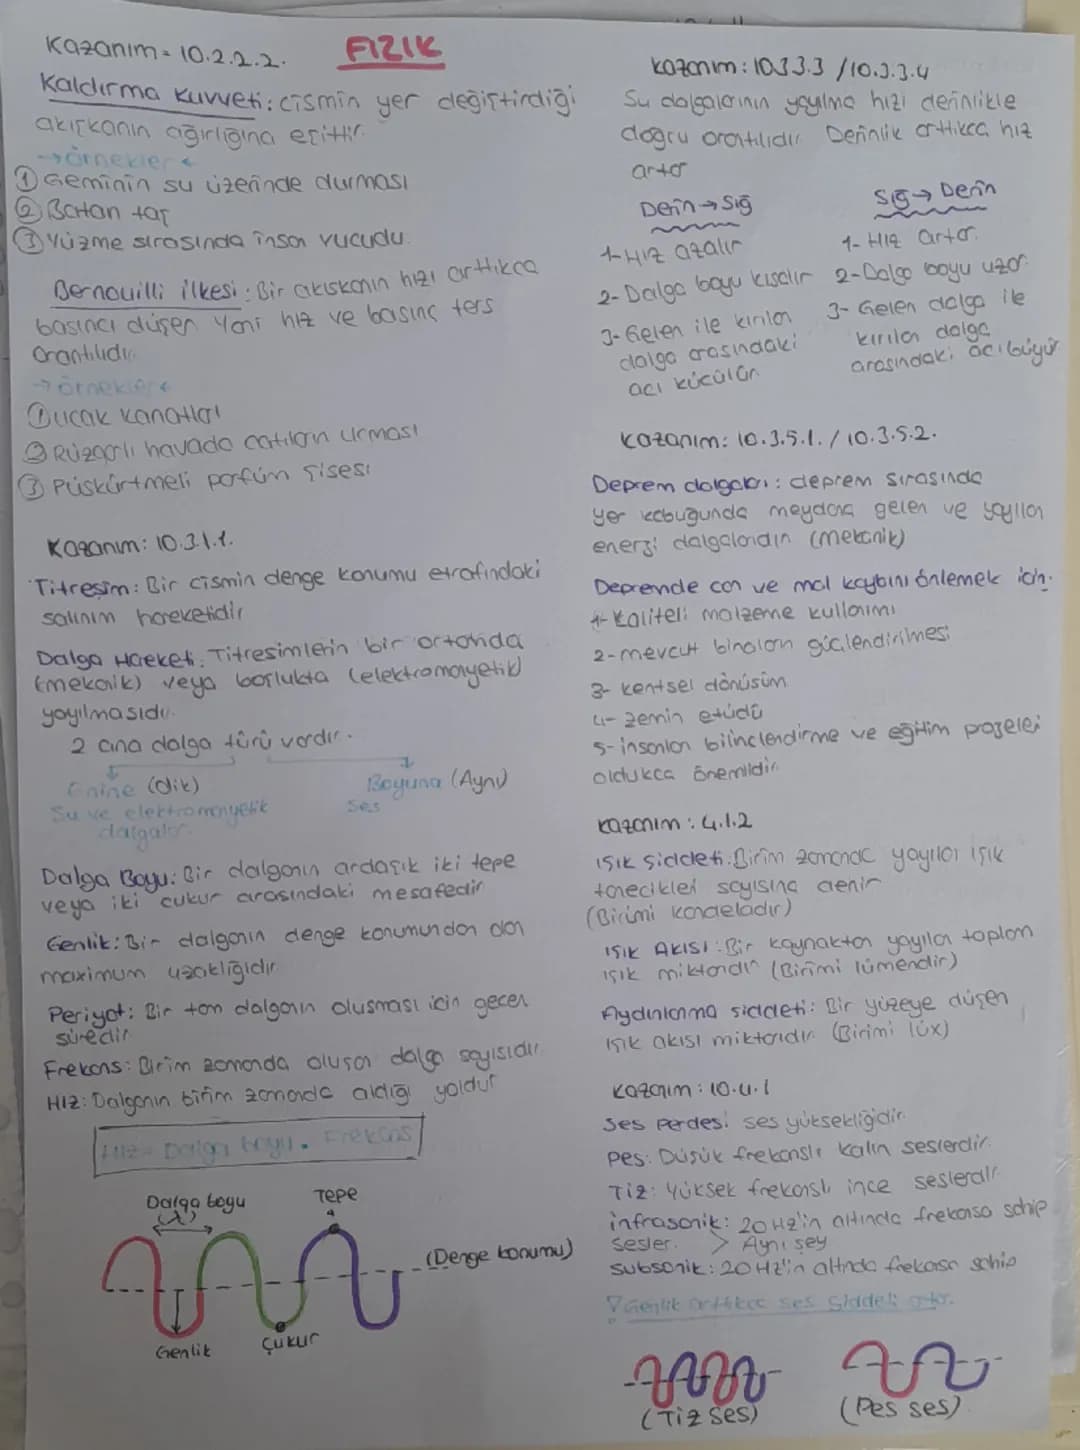 FIZIK
Kazanım = 10.2.2.2.
Kaldırma Kuvveti: cismin yer değiştirdiği
akışkanın ağırlığına eşittir.
→örnekler←
① Geminin su üzerinde durması
② Batan taş
③ Yüzme sırasında insan vucudu.
Bernouilli ilkesi: Bir akışkanın hızı arttıkca
basıncı düşer yani hız ve basınç ters
orantılıdır
→örnekler←
① ucak kanatları
② Rüzgarlı havada catıların ucması
③ Püskürtmeli parfüm şişesi
Kazanım: 10.3.1.1.
Titreşim: Bir cismin denge konumu etrafındaki
salınım hareketidir
Dalga Hareketi: Titresimlerin bir ortamda
(mekanik) veya boşlukta (elektromanyetik)
yayılmasıdır.
2 ana dalga türü vardır.
Enine (dik)
Boyuna (Aynı)
Su ve elektromanyetik
dalgalar
Ses
Dalga Boyu: Bir dalganın ardaşık iki tepe
veya iki cukur arasındaki mesafedir
Genlik: Bir dalganın denge konumundan olan
maximum uzaklığıdır
Periyot: Bir tam dalganın olusması icin gecen
süredir
Frekans: Birim zamanda oluşan dalga sayısıdır
Hız: Dalganın birim zamanda aldığı yoldur
Hız = Dalga boyu . Frekans
Dalga boyu
(λ)
Tepe
(Denge konumu)
Genlik
Çukur
kazanım: 10.3.3.3 / 10.3.3.4
Su dalgalarının yayılma hızı derinlikle
doğru orantılıdır Derinlik arttıkca hız
artar
Derin→Sığ
1- Hız azalır
2- Dalga boyu kısalır
3- Gelen ile kırılan
dalga arasındaki
acı kücülür
Sığ→Derin
1- Hız artar.
2- Dalga boyu uzar
3- Gelen dalga ile
kırılan dalga
arasındaki acı büyür
kazanım: 10.3.5.1. / 10.3.5.2.
Deprem dalgaları: deprem sırasında
yer kabuğunda meydana gelen ve yayılan
enerji dalgalarıdır (mekanik)
Depremde can ve mal kaybını önlemek icin.
1- Kaliteli malzeme kullanımı
2- mevcut binaların güçlendirilmesi
3- kentsel dönüsüm
4- zemin etüdü
5- insanları bilinclendirme ve eğitim projeleri
oldukca önemlidir
kazanım: 4.1.2
ışık şiddeti: Birim zamanda yayılan ışık
tanecikleri sayısına denir
(Birimi kandeladır)
ışık Akısı: Bir kaynaktan yayılan toplam
ışık miktarıdır (Birimi lümendir)
Aydınlanma siddeti: Bir yüzeye düşen
ışık akısı miktarıdır (Birimi lüx)
kazanım: 10.4.1
Ses Perdesi: ses yüksekliğidir.
Pes: Düşük frekanslı kalın seslerdir.
Tiz: Yüksek frekanslı ince seslerdir
infrasonik: 20 Hz'in altında frekansa sahip
sesler.
> Aynı şey
subsonik: 20 Hz'in altında frekansa sahip
Genlik arttıkca ses şiddeti artar.
(Tiz Ses)
(Pes ses)